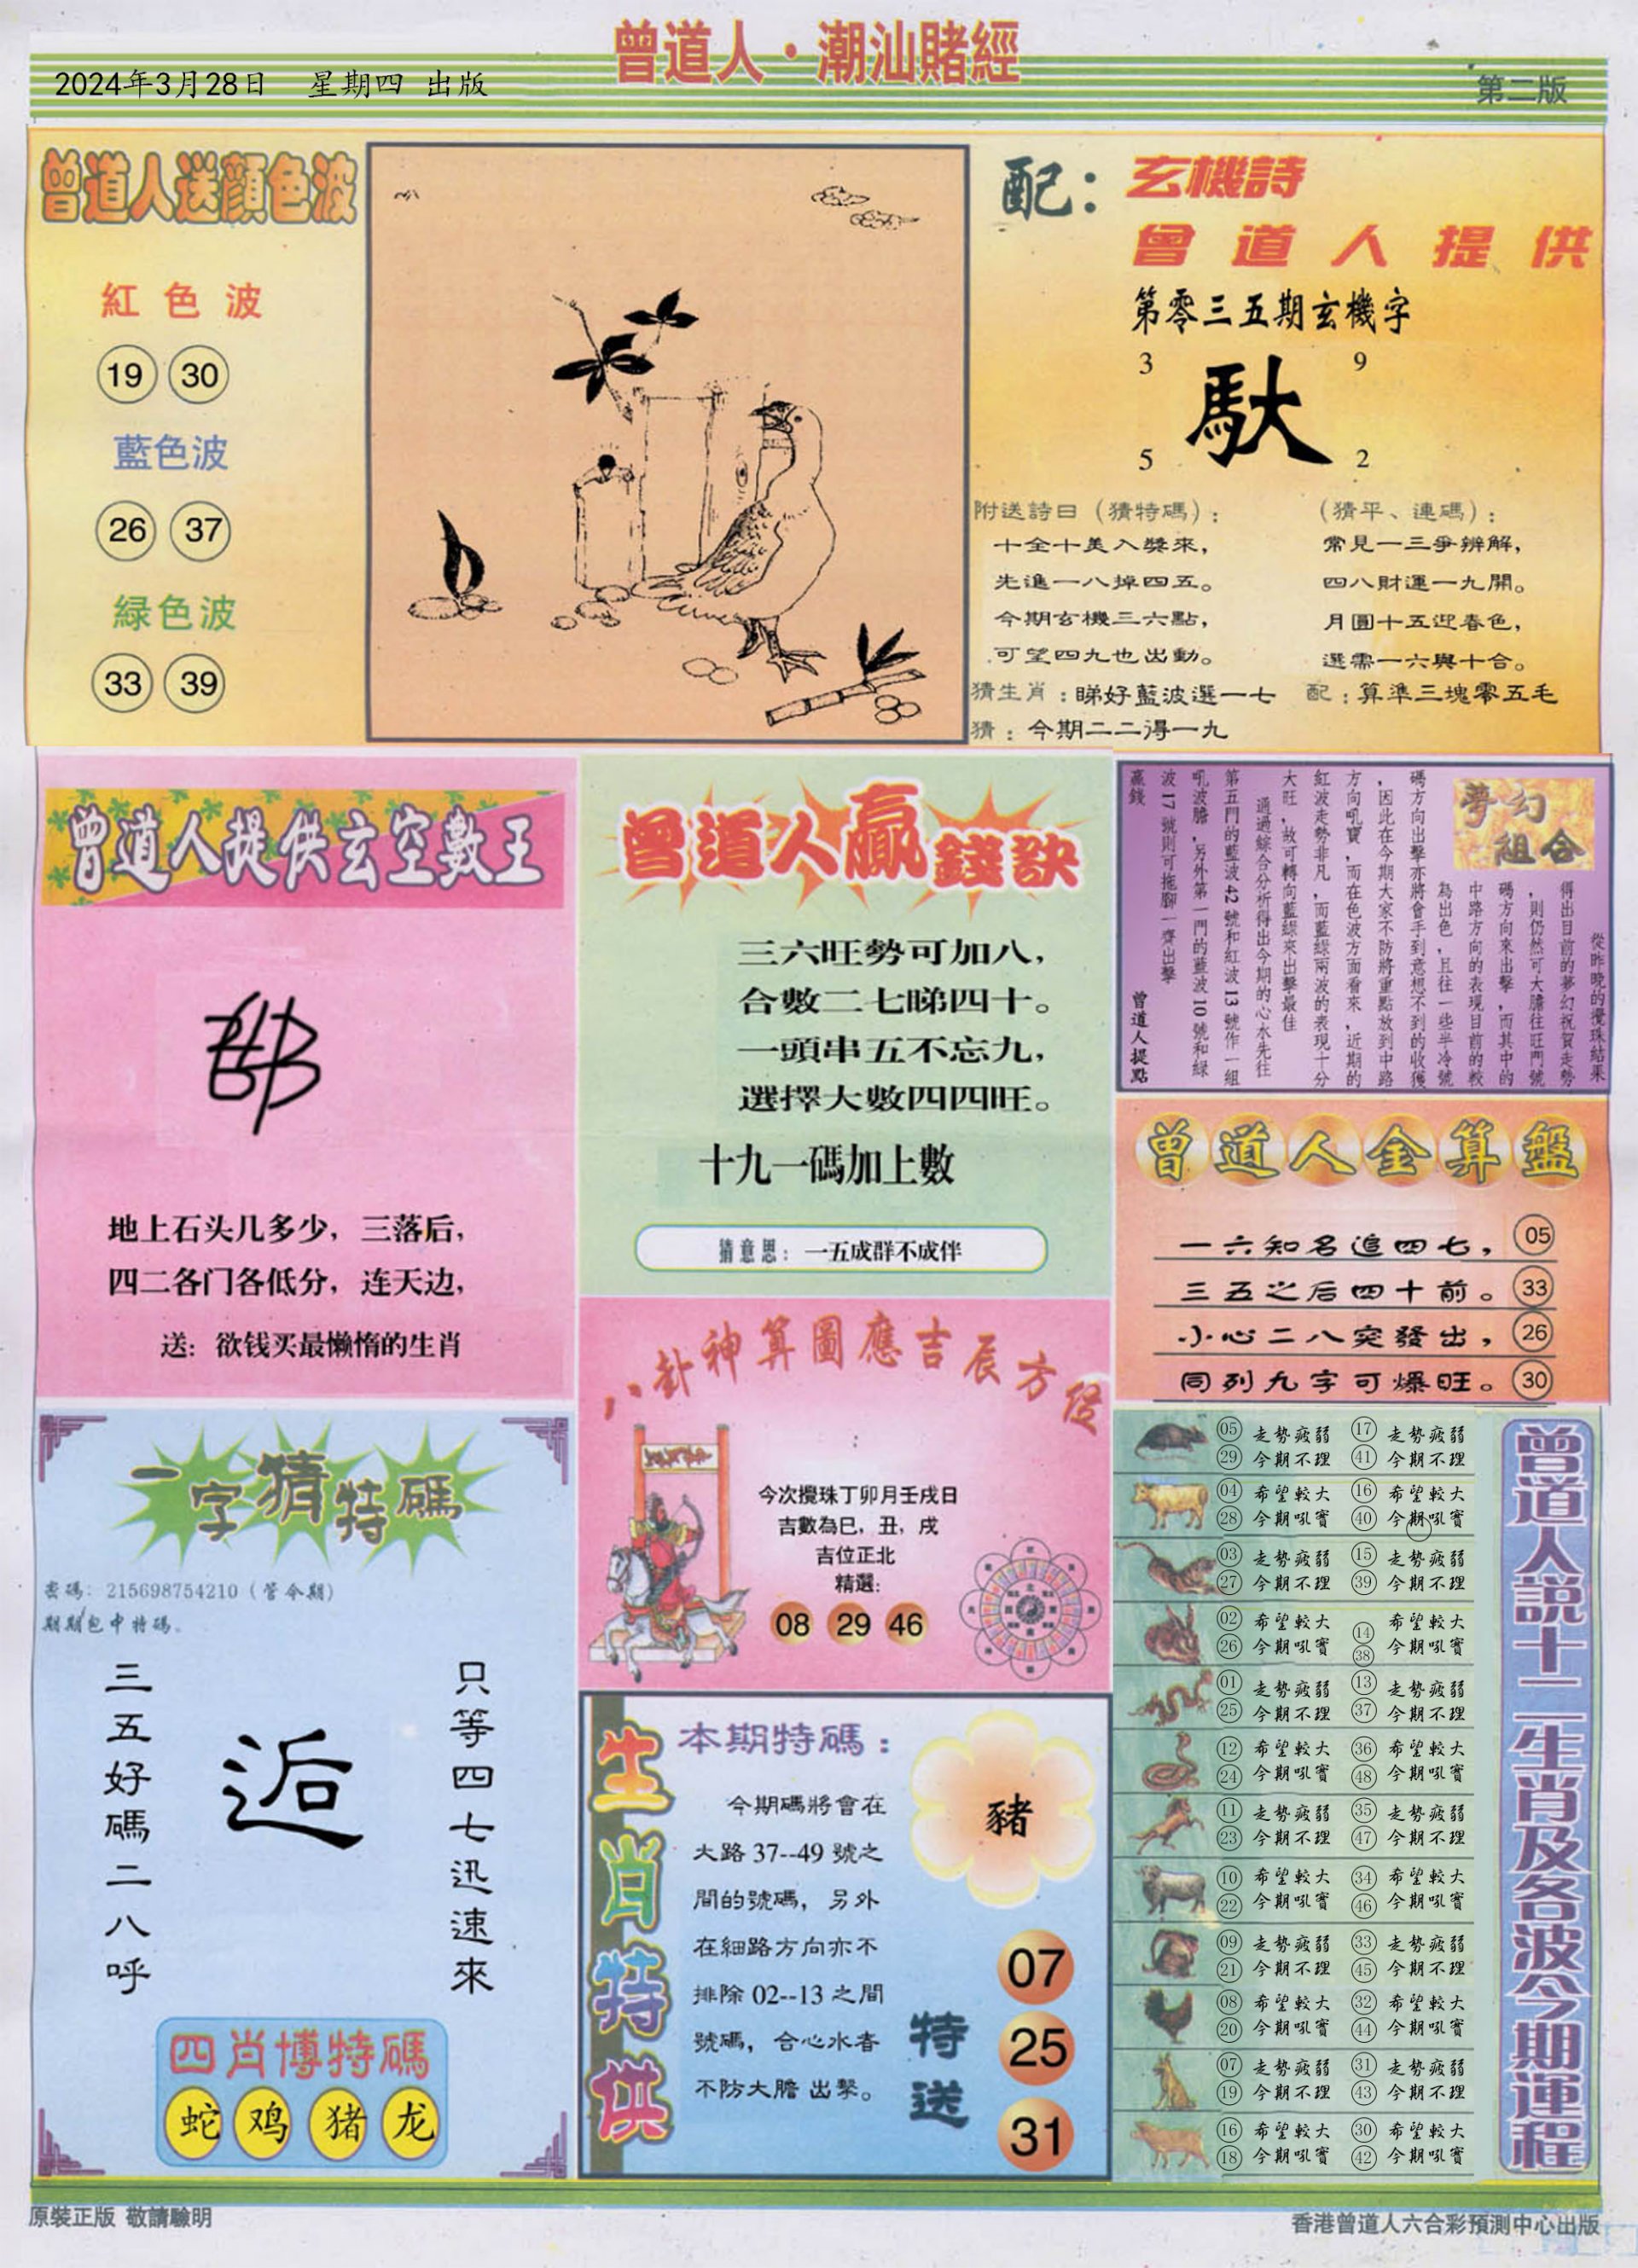 曾道人·潮汕賭經
2024年3月28日 星期四 出版
第二版
曾道人送顔色波
紅色波
19 30
藍色波
26 37
緑色波
33 39
配：玄機詩
曾道人提供
第零三五期玄機字
3 9
馱
5 2
附送詩曰（猜特碼）：
十全十美入獎來，
先進一八掉四五。
今期玄機三六點，
可望四九也出動。
（猜平、連碼）：
常見一三爭辨解，
四八財運一九開。
月圓十五迎春色，
選需一六與十合。
猜生肖：睇好藍波選一七 配：算準三塊零五毛
猜：今期二二得一九
曾道人提供玄空數王
地上石头几多少，三落后，
四二各门各低分，连天边，
送：欲钱买最懒惰的生肖
曾道人贏錢訣
三六旺勢可加八，
合數二七睇四十。
一頭串五不忘九，
選擇大數四四旺。
十九一碼加上數
猜意思：一五成群不成伴
夢幻
組合
從昨晚的攪珠結果
得出目前的夢幻祝賀走勢
，則仍然可大膽往旺門號
碼方向來出擊，而其中的
中路方向的表現目前的較
為出色，且往一些半冷號
碼方向出擊亦將會手到意想不到的收獲
，因此在今期大家不防將重點放到中路
方向吼寶，而在色波方面看來，近期的
紅波走勢非凡，而藍緑兩波的表現十分
大旺，故可轉向藍緑來出擊最佳
通過綜合分析得出今期的心水先往
第五門的藍波42號和紅波13號作一組
吼波膽，另外第一門的藍波10號和緑
波17號則可拖腳一齊出擊
贏錢
曾道人提點
曾道人金算盤
一六知名追四七，05
三五之后四十前。33
小心二八突發出，26
同列九字可爆旺。30
八卦神算圖應吉辰方位
：
今次攪珠丁卯月壬戌日
吉數為巳，丑，戌
吉位正北
精選：
08 29 46
一字猜特碼
密碼：215698754210（管今期）
期期包中特碼。
三五好碼二八呼
逅
只等四七迅速來
四肖博特碼
蛇 鸡 猪 龙
生肖特供
本期特碼：
今期碼將會在
大路37--49號之
間的號碼，另外
在細路方向亦不
排除02--13之間
號碼，合心水者
不防大膽出擊。
豬
特送
07
25
31
05 走勢疲弱 17 走勢疲弱
29 今期不理 41 今期不理
04 希望較大 16 希望較大
28 今期吼實 40 今期吼實
03 走勢疲弱 15 走勢疲弱
27 今期不理 39 今期不理
02 希望較大 14 希望較大
26 今期吼實 38 今期吼實
01 走勢疲弱 13 走勢疲弱
25 今期不理 37 今期不理
12 希望較大 36 希望較大
24 今期吼實 48 今期吼實
11 走勢疲弱 35 走勢疲弱
23 今期不理 47 今期不理
10 希望較大 34 希望較大
22 今期吼實 46 今期吼實
09 走勢疲弱 33 走勢疲弱
21 今期不理 45 今期不理
08 希望較大 32 希望較大
20 今期吼實 44 今期吼實
07 走勢疲弱 31 走勢疲弱
19 今期不理 43 今期不理
16 希望較大 30 希望較大
18 今期吼實 42 今期吼實
曾道人説十二生肖及各波今期運程
原裝正版 敬請驗明
香港曾道人六合彩預測中心出版